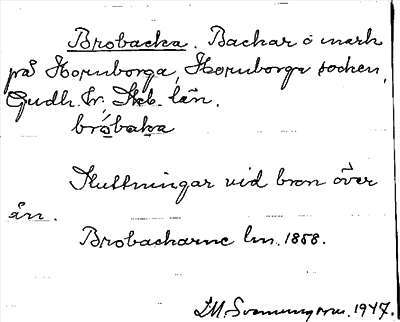 Brobacka. Backar å mark
på Hornborga, Hornborga socken,
Gudh. hr, Skb. län.
bró̱ba̱ka
Sluttningar vid bron över
ån.
Brobackarne lm. 1858.
1947.